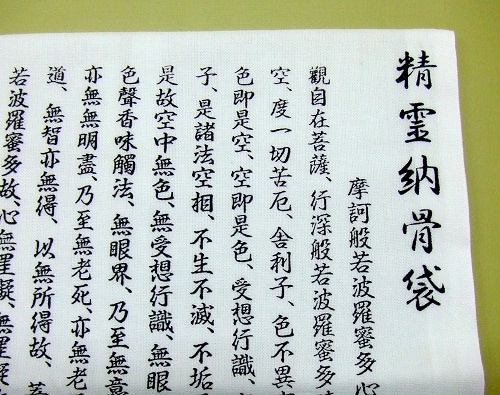 精霊納骨袋
摩訶般若波羅蜜多心
觀自在菩薩、行深般若波羅蜜多
空、度一切苦厄、舎利子、色不異
色即是空、空即是色、受想行識、
子、是諸法空相、不生不滅、不垢
是故空中無色、無受想行識、無眼
色聲香味觸法、無眼界、乃至無意
亦無無明盡、乃至無老死、亦無老
道、無智亦無得、以無所得故、菩
若波羅蜜多故、心無罣礙、無罣